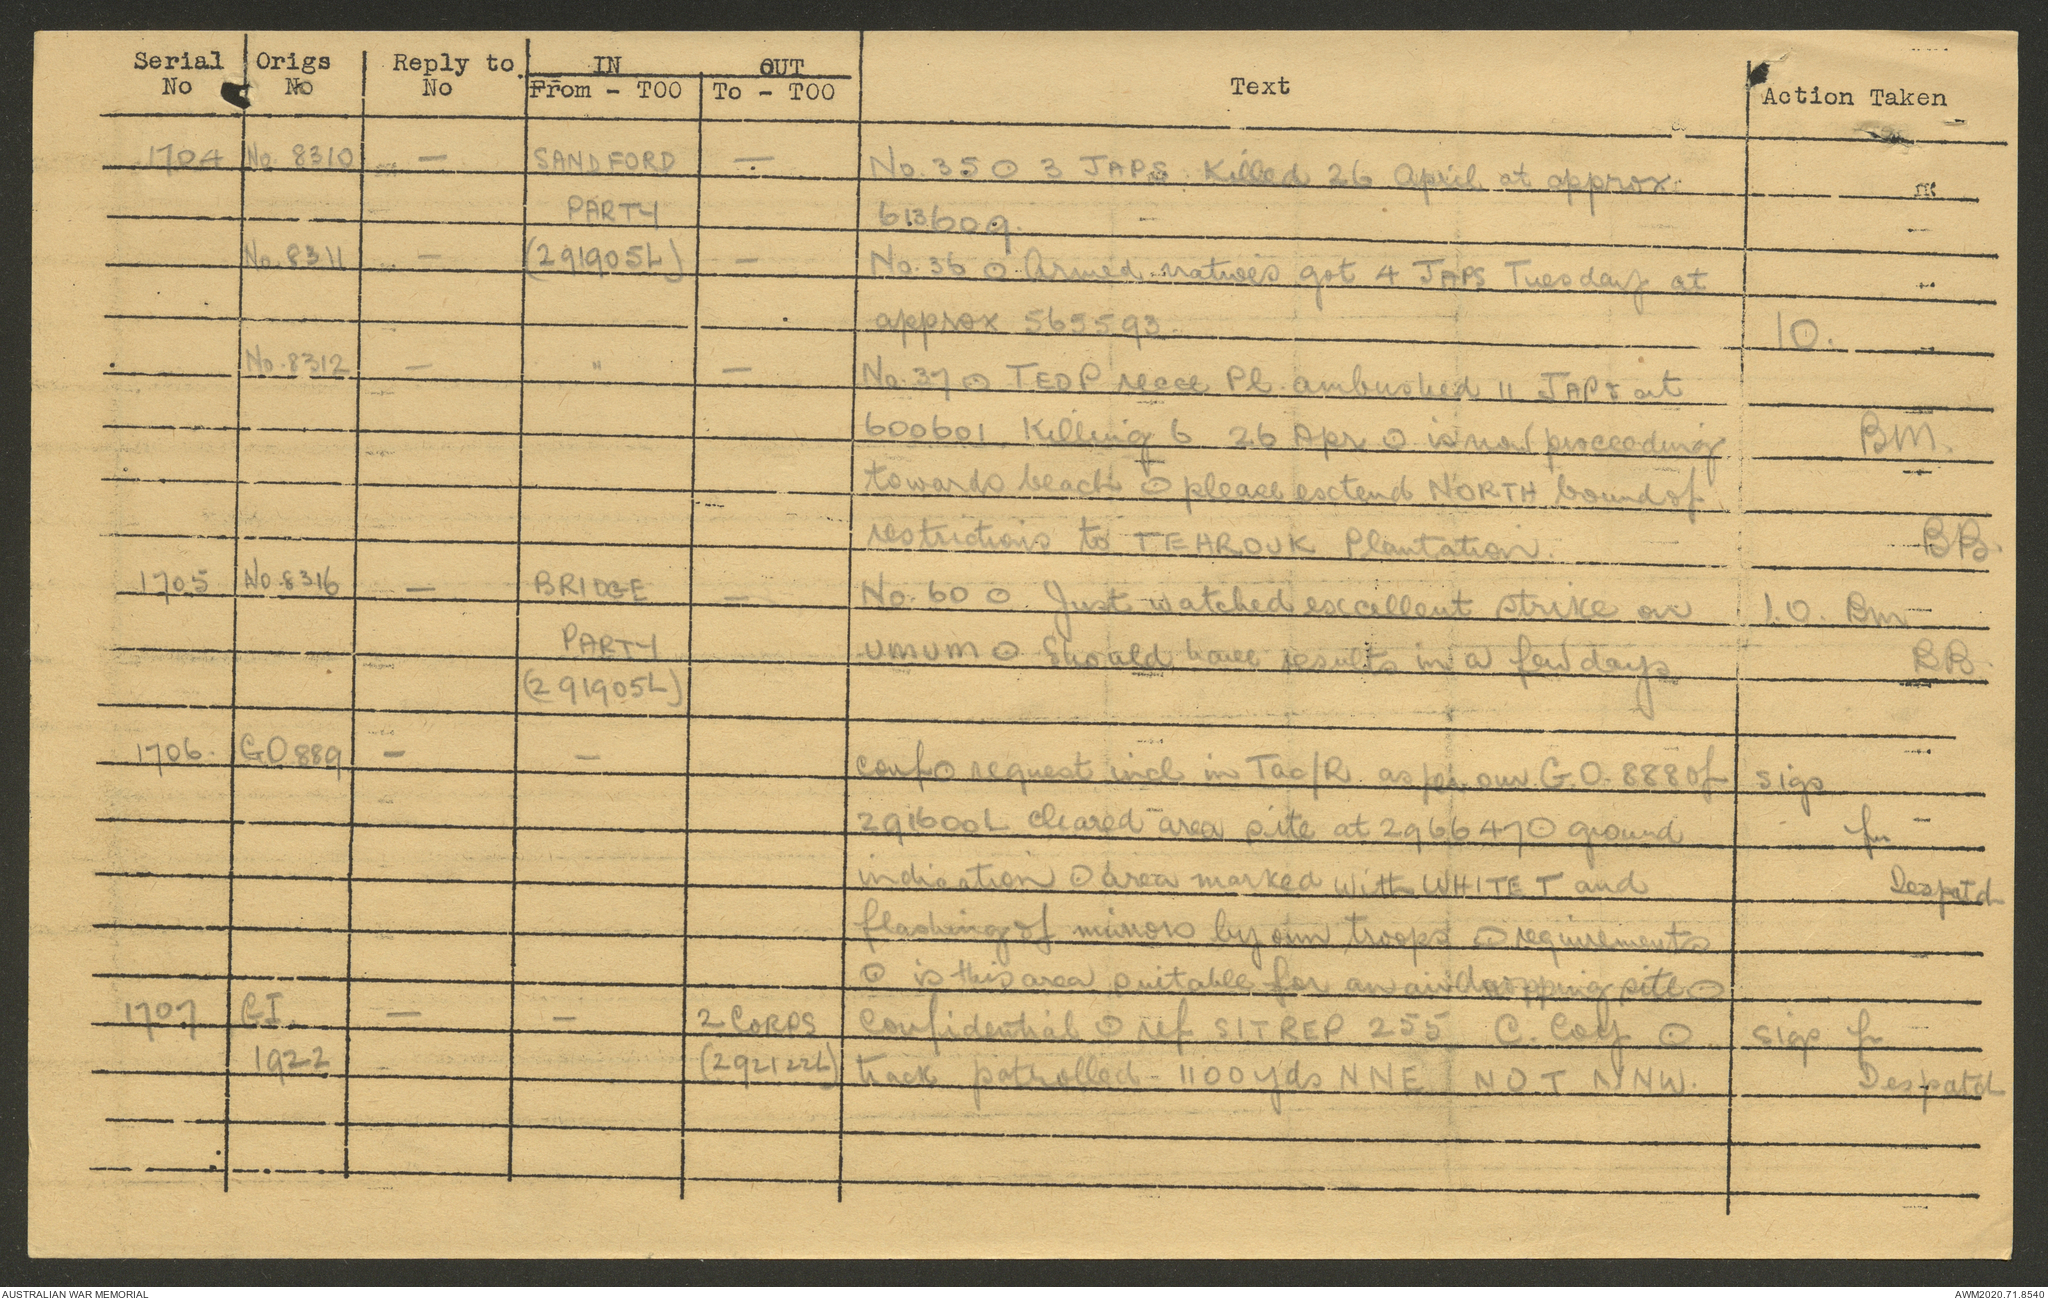 Serial No | Origs No | Reply to No | IN From - TOO | OUT To - TOO | Text | Action Taken
1704 | No. 8310 | — | SANDFORD | — | No. 35 ⊙ 3 JAPS Killed 26 April at approx
PARTY | 613609.
No. 8311 | — | (291905L) | — | No. 36 ⊙ Armed natives got 4 JAPS Tuesday at
approx 565593. | IO.
No. 8312 | — | " | — | No. 37 ⊙ TEOP recce Pl. ambushed 11 JAPS at
600601 Killing 6 26 Apr ⊙ is now proceeding | BM.
towards beach ⊙ please extend NORTH bound of
restrictions to TEAROUK Plantation. | BB.
1705 | No. 8316 | — | BRIDGE | — | No. 60 ⊙ Just watched excellent strike on | I.O. Bm
PARTY | UMUM ⊙ Should have results in a few days | BB.
(291905L)
1706. | GO 889 | — | — | conf ⊙ request incl in Tac/R as per our G.O. 888 of | sigs
291600L cleared area site at 296647 ⊙ ground | fr
indication ⊙ area marked with WHITE T and | Despatch
flashing of mirrors by our troops ⊙ requirements
⊙ is this area suitable for an air dropping site ⊙
1707 | GI | — | — | 2 CORPS | Confidential ⊙ ref SITREP 255 C. Coy ⊙ | sigs fr
1922 | (292122L) | track patrolled - 1100 yds NNE NOT NNW. | Despatch
AUSTRALIAN WAR MEMORIAL
AWM2020.71.8540